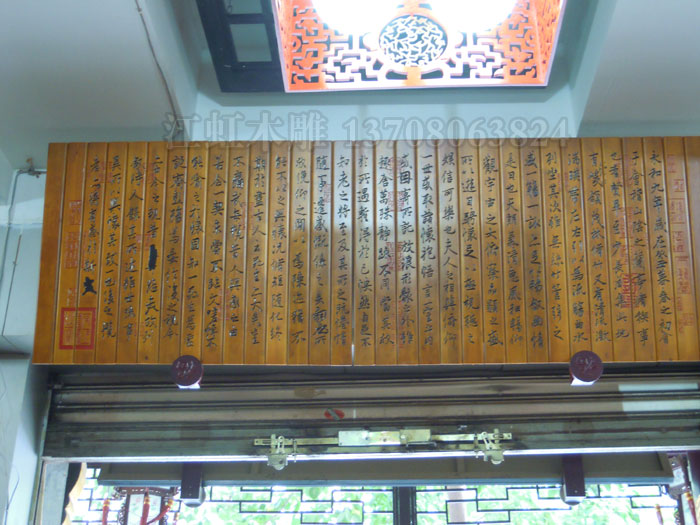 永和九年歲在癸丑暮春之初會
于會稽山陰之蘭亭脩稧事
也羣賢畢至少長咸集此地
有峻領茂林脩竹又有清流激
湍暎帶左右引以為流觴曲水
列坐其次雖無絲竹管弦之
盛一觴一詠亦足以暢敘幽情
是日也天朗氣清惠風和暢仰
觀宇宙之大俯察品類之盛
所以遊目騁懷足以極視聽之
娛信可樂也夫人之相與俯仰
一世或取諸懷抱悟言一室之內
或因寄所託放浪形骸之外雖
趣舍萬殊靜躁不同當其欣
於所遇蹔得於己怏然自足不
知老之將至及其所之既惓情
隨事遷感慨係之矣向之所欣
俛仰之間以為陳迹猶不
能不以之興懷況脩短隨化終
期於盡古人云死生亦大矣
不痛哉每攬昔人興感之由
若合一契未嘗不臨文嗟悼不
能喻之於懷固知一死生為虛
誕齊彭殤為妄作後之視今
亦由今之視昔
敘時人錄其所述雖世殊事
異所以興懷其致一也後之攬
者亦將有感於斯文
江虹木雕 13708063824